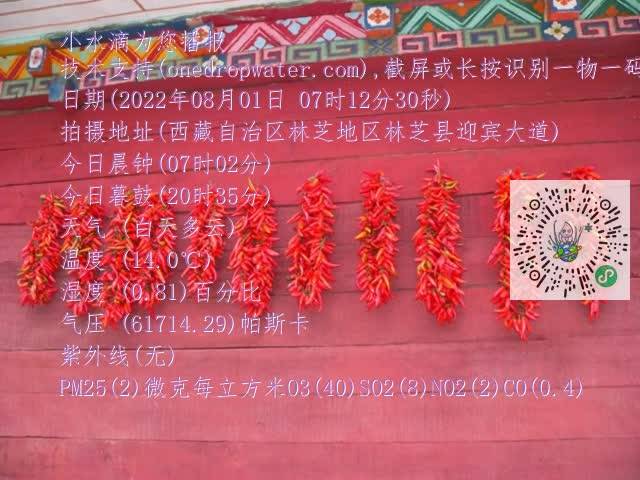 小水滴为您播报
技术支持(onedropwater.com),截屏或长按识别一物一码
日期(2022年08月01日 07时12分30秒)
拍摄地址(西藏自治区林芝地区林芝县迎宾大道)
今日晨钟(07时02分)
今日暮鼓(20时35分)
天气 (白天多云)
温度 (14.0℃)
湿度 (0.81)百分比
气压 (61714.29)帕斯卡
紫外线(无)
PM25(2)微克每立方米O3(40)SO2(8)NO2(2)CO(0.4)